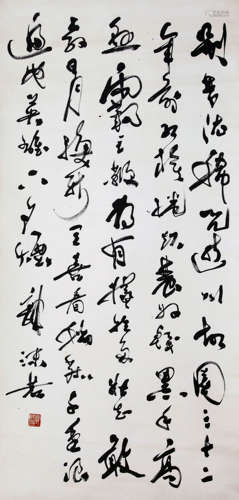 別夢依稀咒逝川故園三十二
年前紅旗捲起農奴戟黑手高
懸霸主鞭為有犧牲多壯志敢
教日月換新天喜看稻菽千重浪
遍地英雄下夕煙 郭沫若